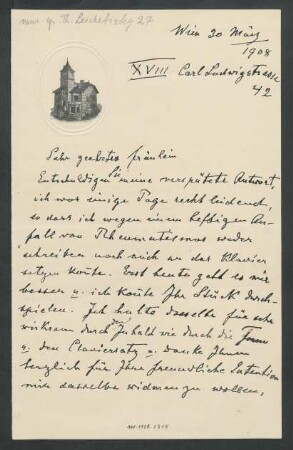 mus. ep. Th. Leschetizky 27
Wien 20 März
1908
XVIII Carl Ludwigstrasse
42
Sehr geehrtes Fräulein
Entschuldigen Sie meine verspätete Antwort,
ich war einige Tage recht leidend,
so dass ich wegen einem heftigen An-
fall von Rheumatismus weder
schreiben noch mich an das Klavier
setzen konte. Erst heute geht es mir
besser u. ich konte Ihr Stück durch-
spielen. Ich halte dasselbe für sehr
wirksam durch den Inhalt wie durch die Form
u. den Claviersatz u. danke Ihnen
herzlich für Ihre freundliche Intention
mir dasselbe widmen zu wollen,